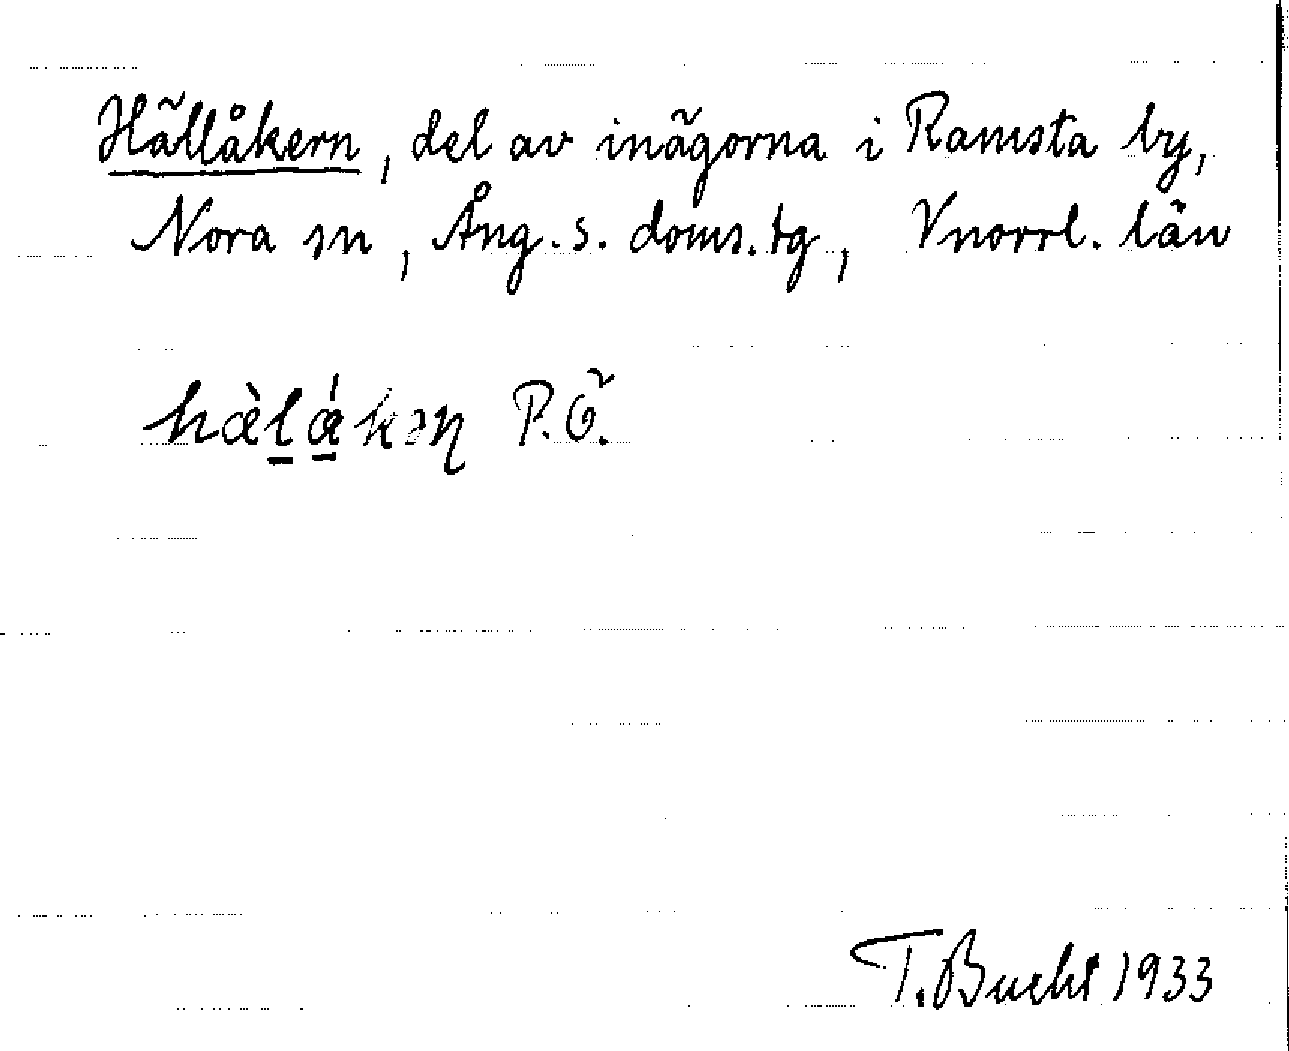 Hällåkern, del av inägorna i Ramsta by,
Nora sn, Ång. s. doms. tg, Vnorrl. län
hæ̀l̠ǽ̠kəɳ P.Ö.
T. Bucht 1933